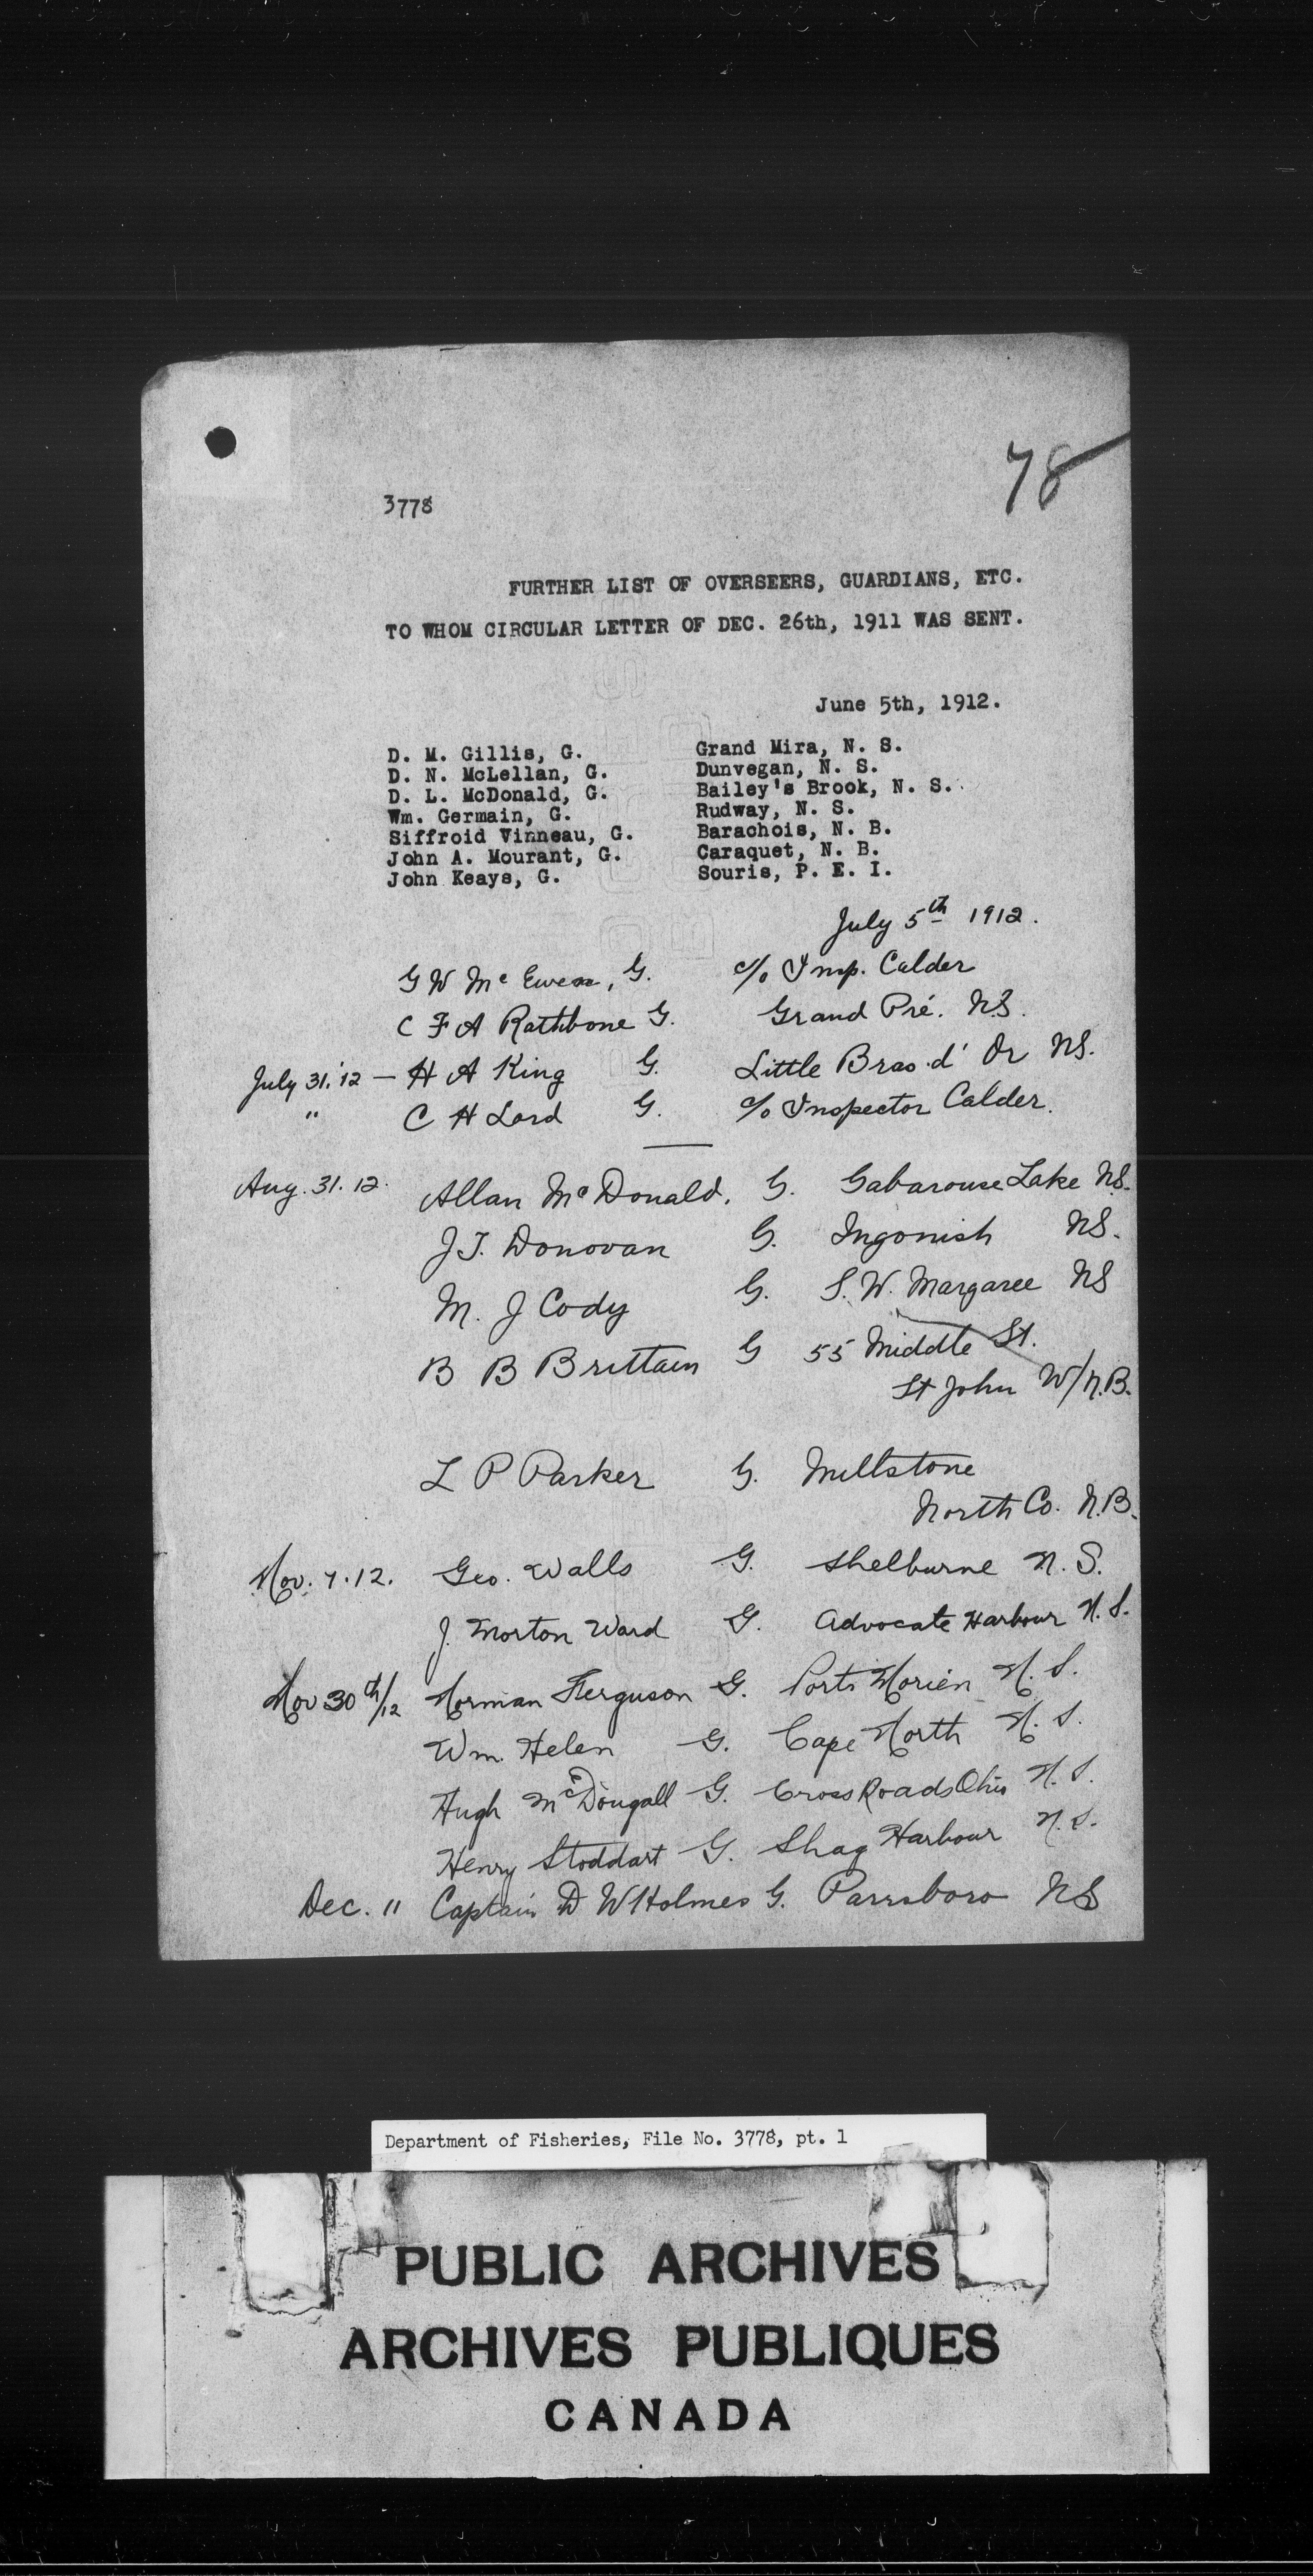 78
3778
FURTHER LIST OF OVERSEERS, GUARDIANS, ETC.
TO WHOM CIRCULAR LETTER OF DEC. 26th, 1911 WAS SENT.
June 5th, 1912.
D. M. Gillis, G. Grand Mira, N. S.
D. N. McLellan, G. Dunvegan, N. S.
D. L. McDonald, G. Bailey's Brook, N. S.
Wm. Germain, G. Rudway, N. S.
Siffroid Vinneau, G. Barachois, N. B.
John A. Mourant, G. Caraquet, N. B.
John Keays, G. Souris, P. E. I.
July 5th 1912.
G W McEwen, G. c/o Insp. Calder
C F A Rathbone G. Grand Pré. N.S.
July 31.'12 — H A King G. Little Bras d'Or NS.
" C H Lord G. c/o Inspector Calder.
Aug. 31. 12. Allan McDonald, G. Gabarouse Lake NS.
J.T. Donovan G. Ingonish NS.
M. J Cody G. S.W. Margaree NS
B B Brittain G 55 Middle St.
St John W/N.B.
L P Parker G. Millstone
North Co. N.B.
Nov. 7.12. Geo. Walls G. Shelburne N.S.
J. Morton Ward G. Advocate Harbour N.S.
Nov 30th/12 Norman Ferguson G. Port Morien N.S.
Wm. Helen G. Cape North N.S.
Hugh McDougall G. Cross Roads Ohio N.S.
Henry Stoddart G. Shag Harbour N.S.
Dec. 11 Captain D W Holmes G. Parrsboro NS
Department of Fisheries, File No. 3778, pt. 1
PUBLIC ARCHIVES
ARCHIVES PUBLIQUES
CANADA